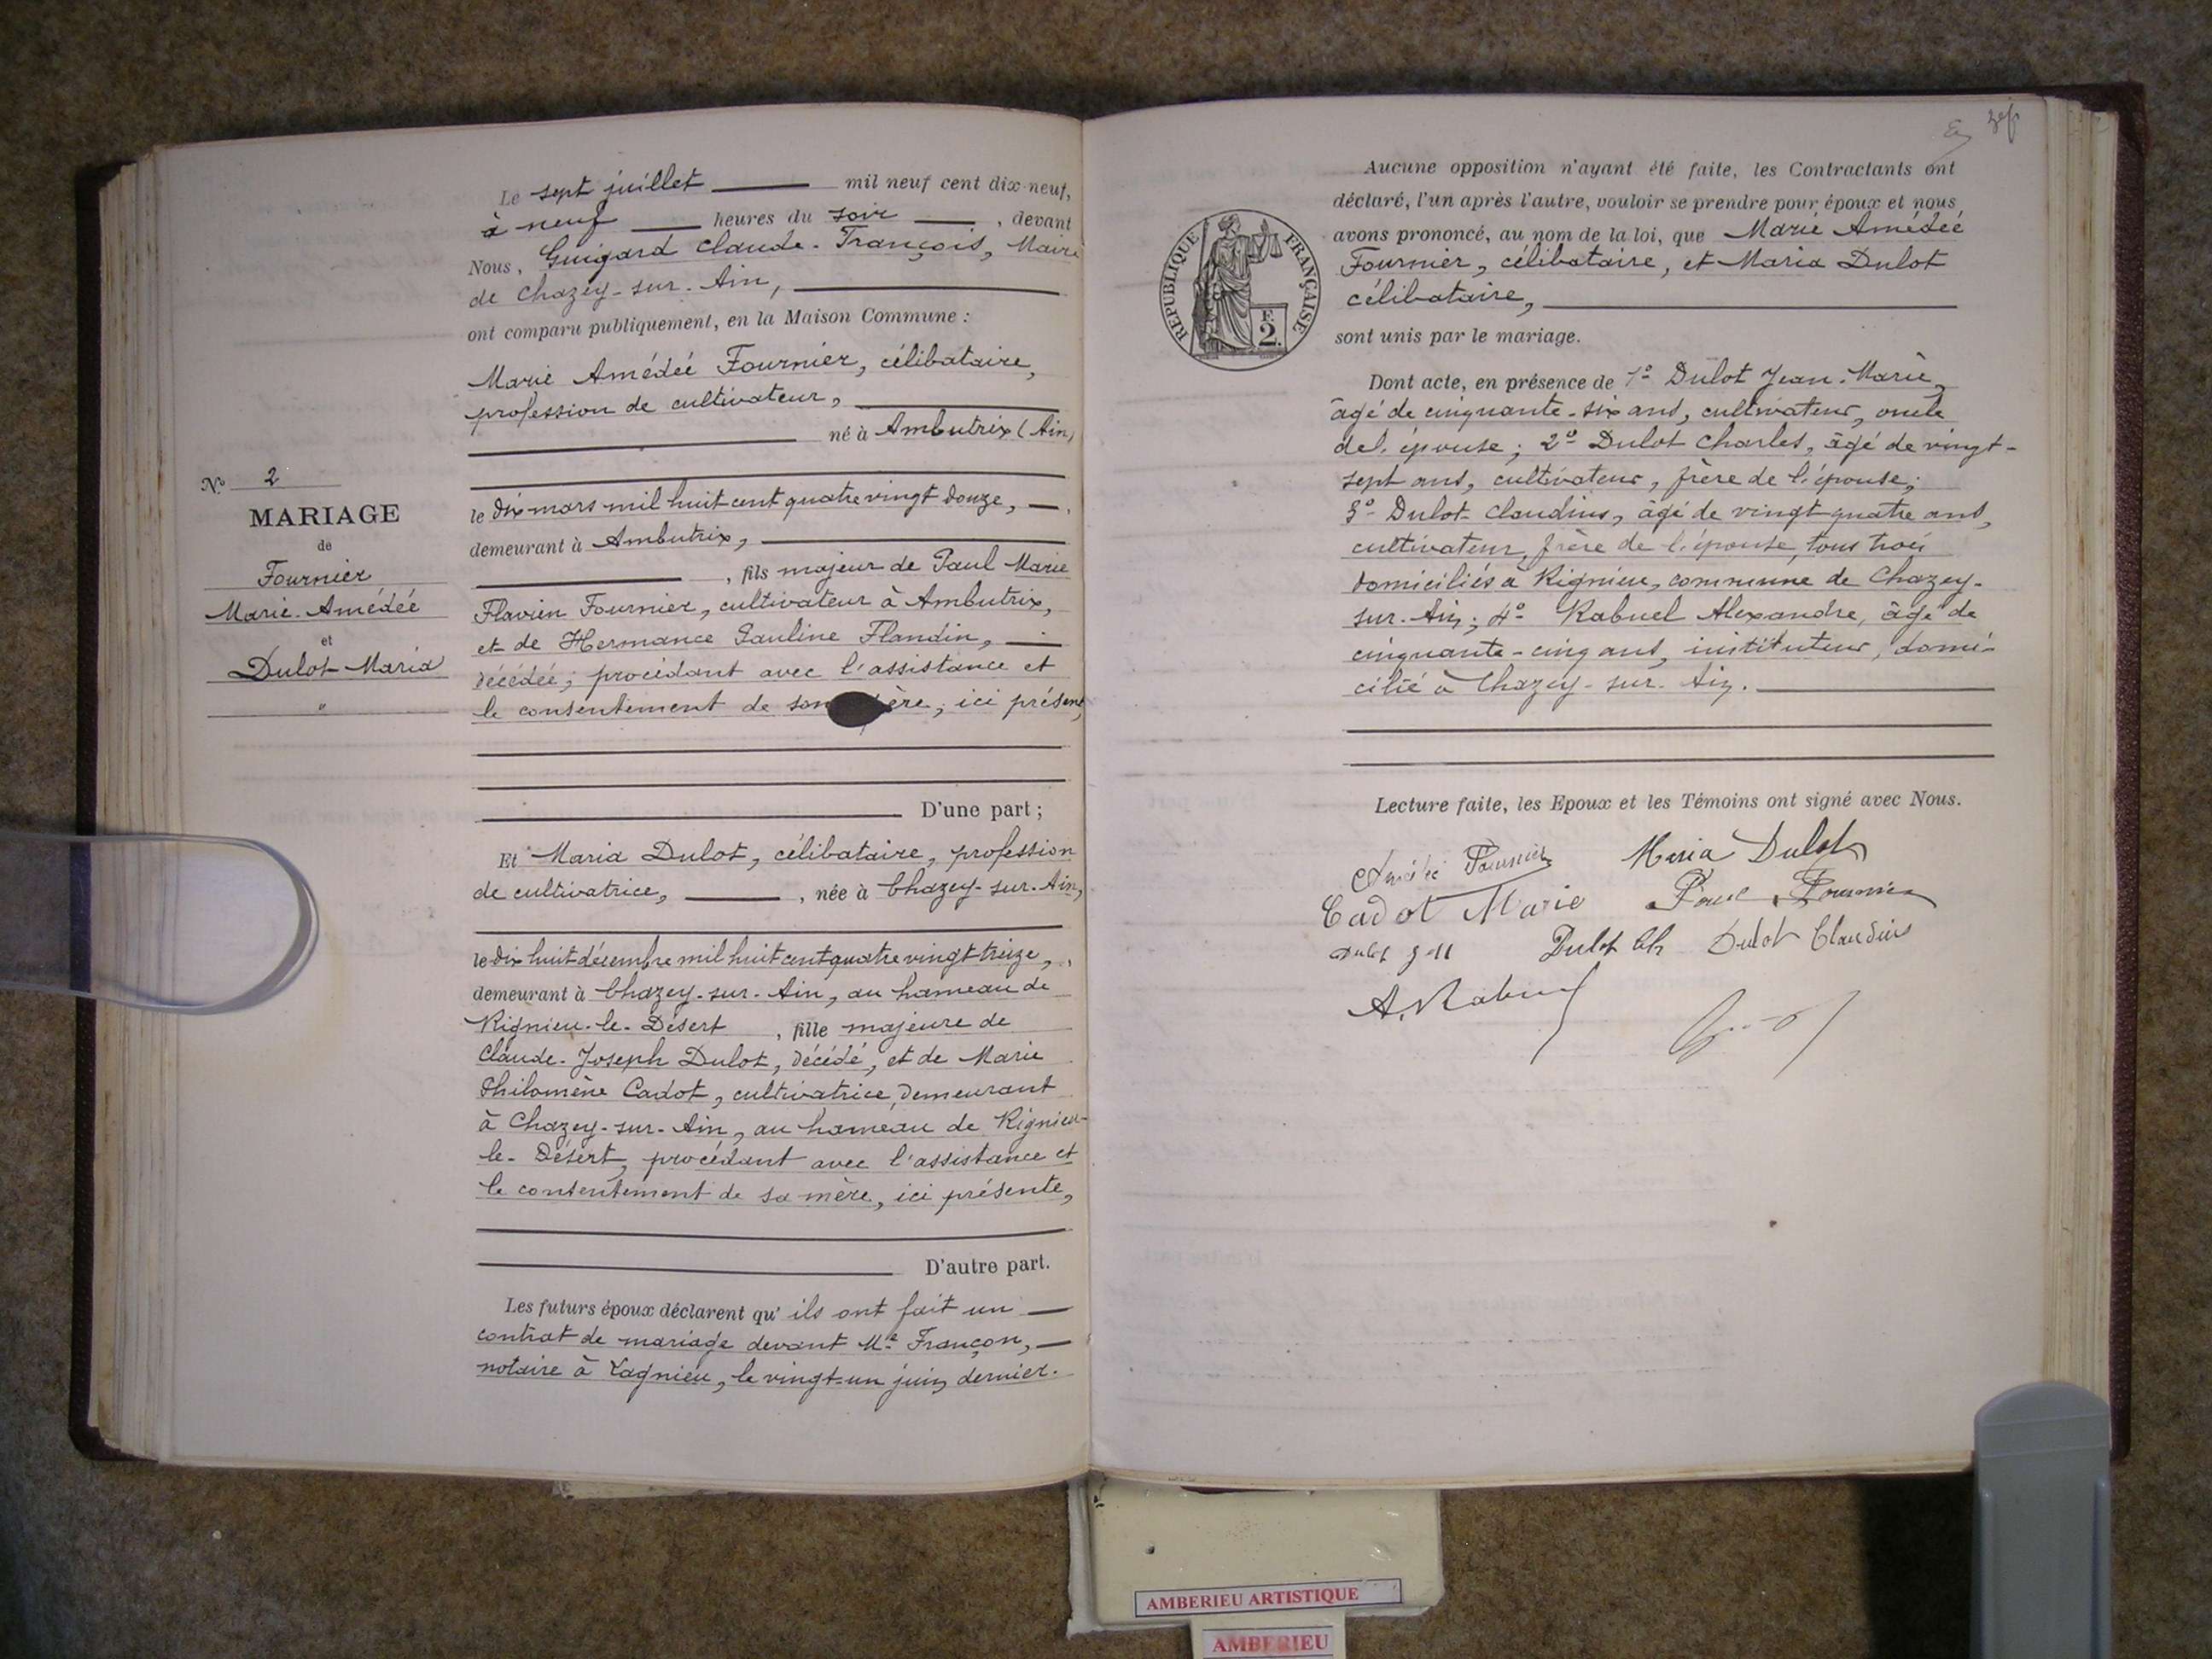 Le sept juillet mil neuf cent dix-neuf,
à neuf heures du soir, devant
Nous, Guigard Claude-François, Maire
de Chazey-sur-Ain,
ont comparu publiquement, en la Maison Commune :
Marie Amédée Fournier, célibataire,
profession de cultivateur,
né à Ambutrix (Ain)
le dix mars mil huit cent quatre vingt douze,
demeurant à Ambutrix,
, fils majeur de Paul Marie
Flavien Fournier, cultivateur à Ambutrix,
et de Hermance Pauline Flandin,
décédée; procédant avec l'assistance et
le consentement de son père, ici présent,
D'une part ;
Et Maria Dulot, célibataire, profession
de cultivatrice, , née à Chazey-sur-Ain,
le dix huit décembre mil huit cent quatre vingt treize,
demeurant à Chazey-sur-Ain, au hameau de
Rignieu-le-Désert , fille majeure de
Claude-Joseph Dulot, décédé, et de Marie
Philomène Cadot, cultivatrice, demeurant
à Chazey-sur-Ain, au hameau de Rignieu-
le-Désert, procédant avec l'assistance et
le consentement de sa mère, ici présente,
D'autre part.
Les futurs époux déclarent qu'ils ont fait un
contrat de mariage devant Me Françon,
notaire à Lagnieu, le vingt-un juin dernier.
No 2
MARIAGE
de
Fournier
Marie-Amédée
et
Dulot Maria
"
Aucune opposition n'ayant été faite, les Contractants ont
déclaré, l'un après l'autre, vouloir se prendre pour époux et nous
avons prononcé, au nom de la loi, que Marie Amédée
Fournier, célibataire, et Maria Dulot
célibataire,
sont unis par le mariage.
RÉPUBLIQUE FRANÇAISE
F.
2.
Dont acte, en présence de 1º Dulot Jean-Marie,
âgé de cinquante-six ans, cultivateur, oncle
de l'épouse; 2º Dulot Charles, âgé de vingt-
sept ans, cultivateur, frère de l'épouse;
3º Dulot Claudius, âgé de vingt quatre ans,
cultivateur, frère de l'épouse, tous trois
domiciliés à Rignieu, commune de Chazey-
sur-Ain; 4º Rabuel Alexandre, âgé de
cinquante-cinq ans, instituteur, domi-
cilié à Chazey-sur-Ain.
Lecture faite, les Epoux et les Témoins ont signé avec Nous.
Amédée Fournier Maria Dulot
Cadot Marie Paul Fournier
Dulot J M Dulot Ch Dulot Claudius
A. Rabuel
AMBERIEU ARTISTIQUE
AMBERIEU